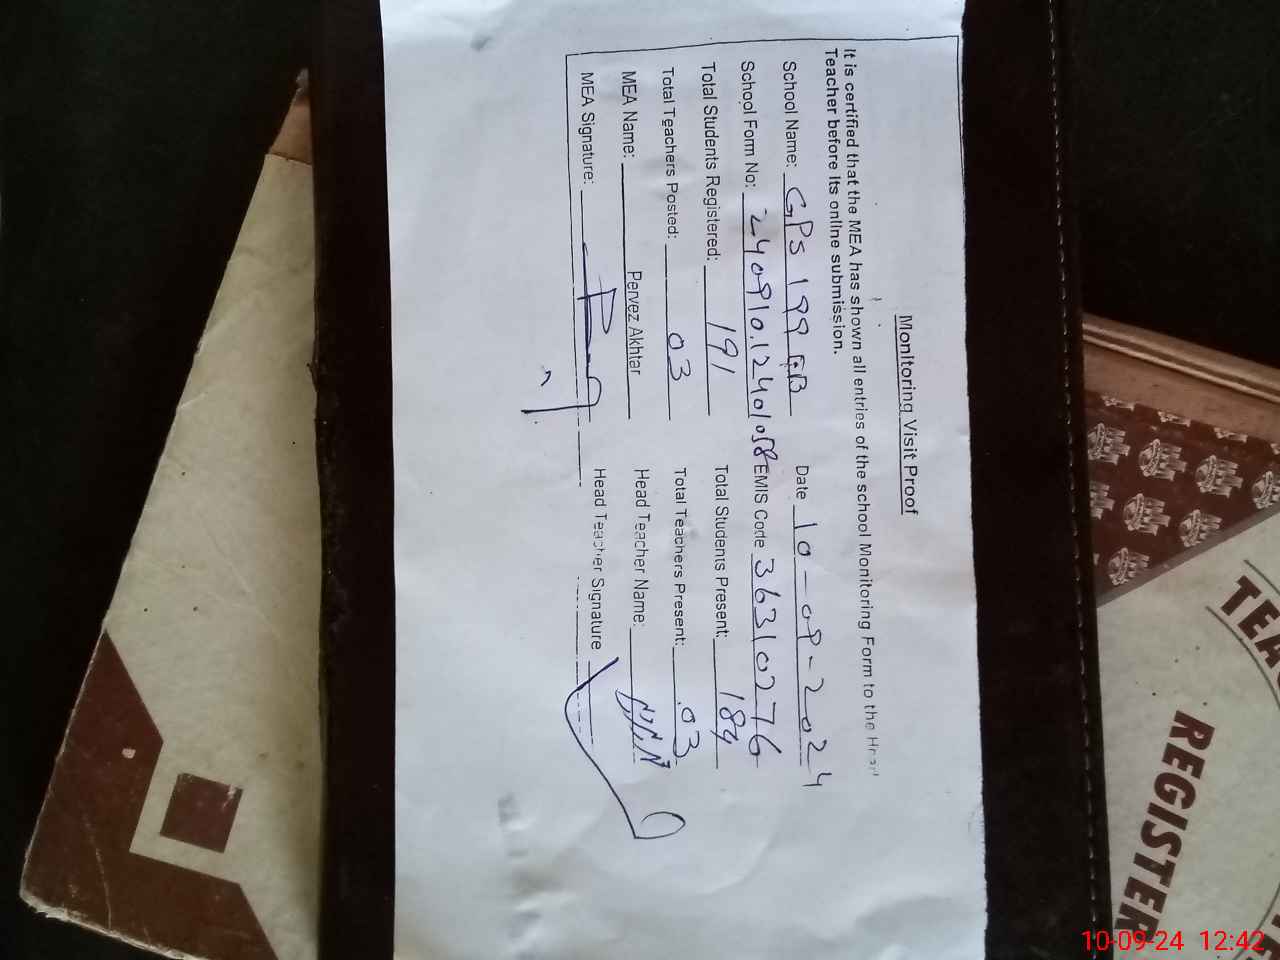 Monitoring Visit Proof
It is certified that the MEA has shown all entries of the school Monitoring Form to the Head
Teacher before its online submission.
School Name: GPS 199 EB Date 10-09-2024
School Form No: 240910.12401058 EMIS Code 36310276
Total Students Registered: 191 Total Students Present: 184
Total Teachers Posted: 03 Total Teachers Present: 03
MEA Name: Pervez Akhtar Head Teacher Name:
MEA Signature: Head Teacher Signature
REGISTER
10-09-24 12:42